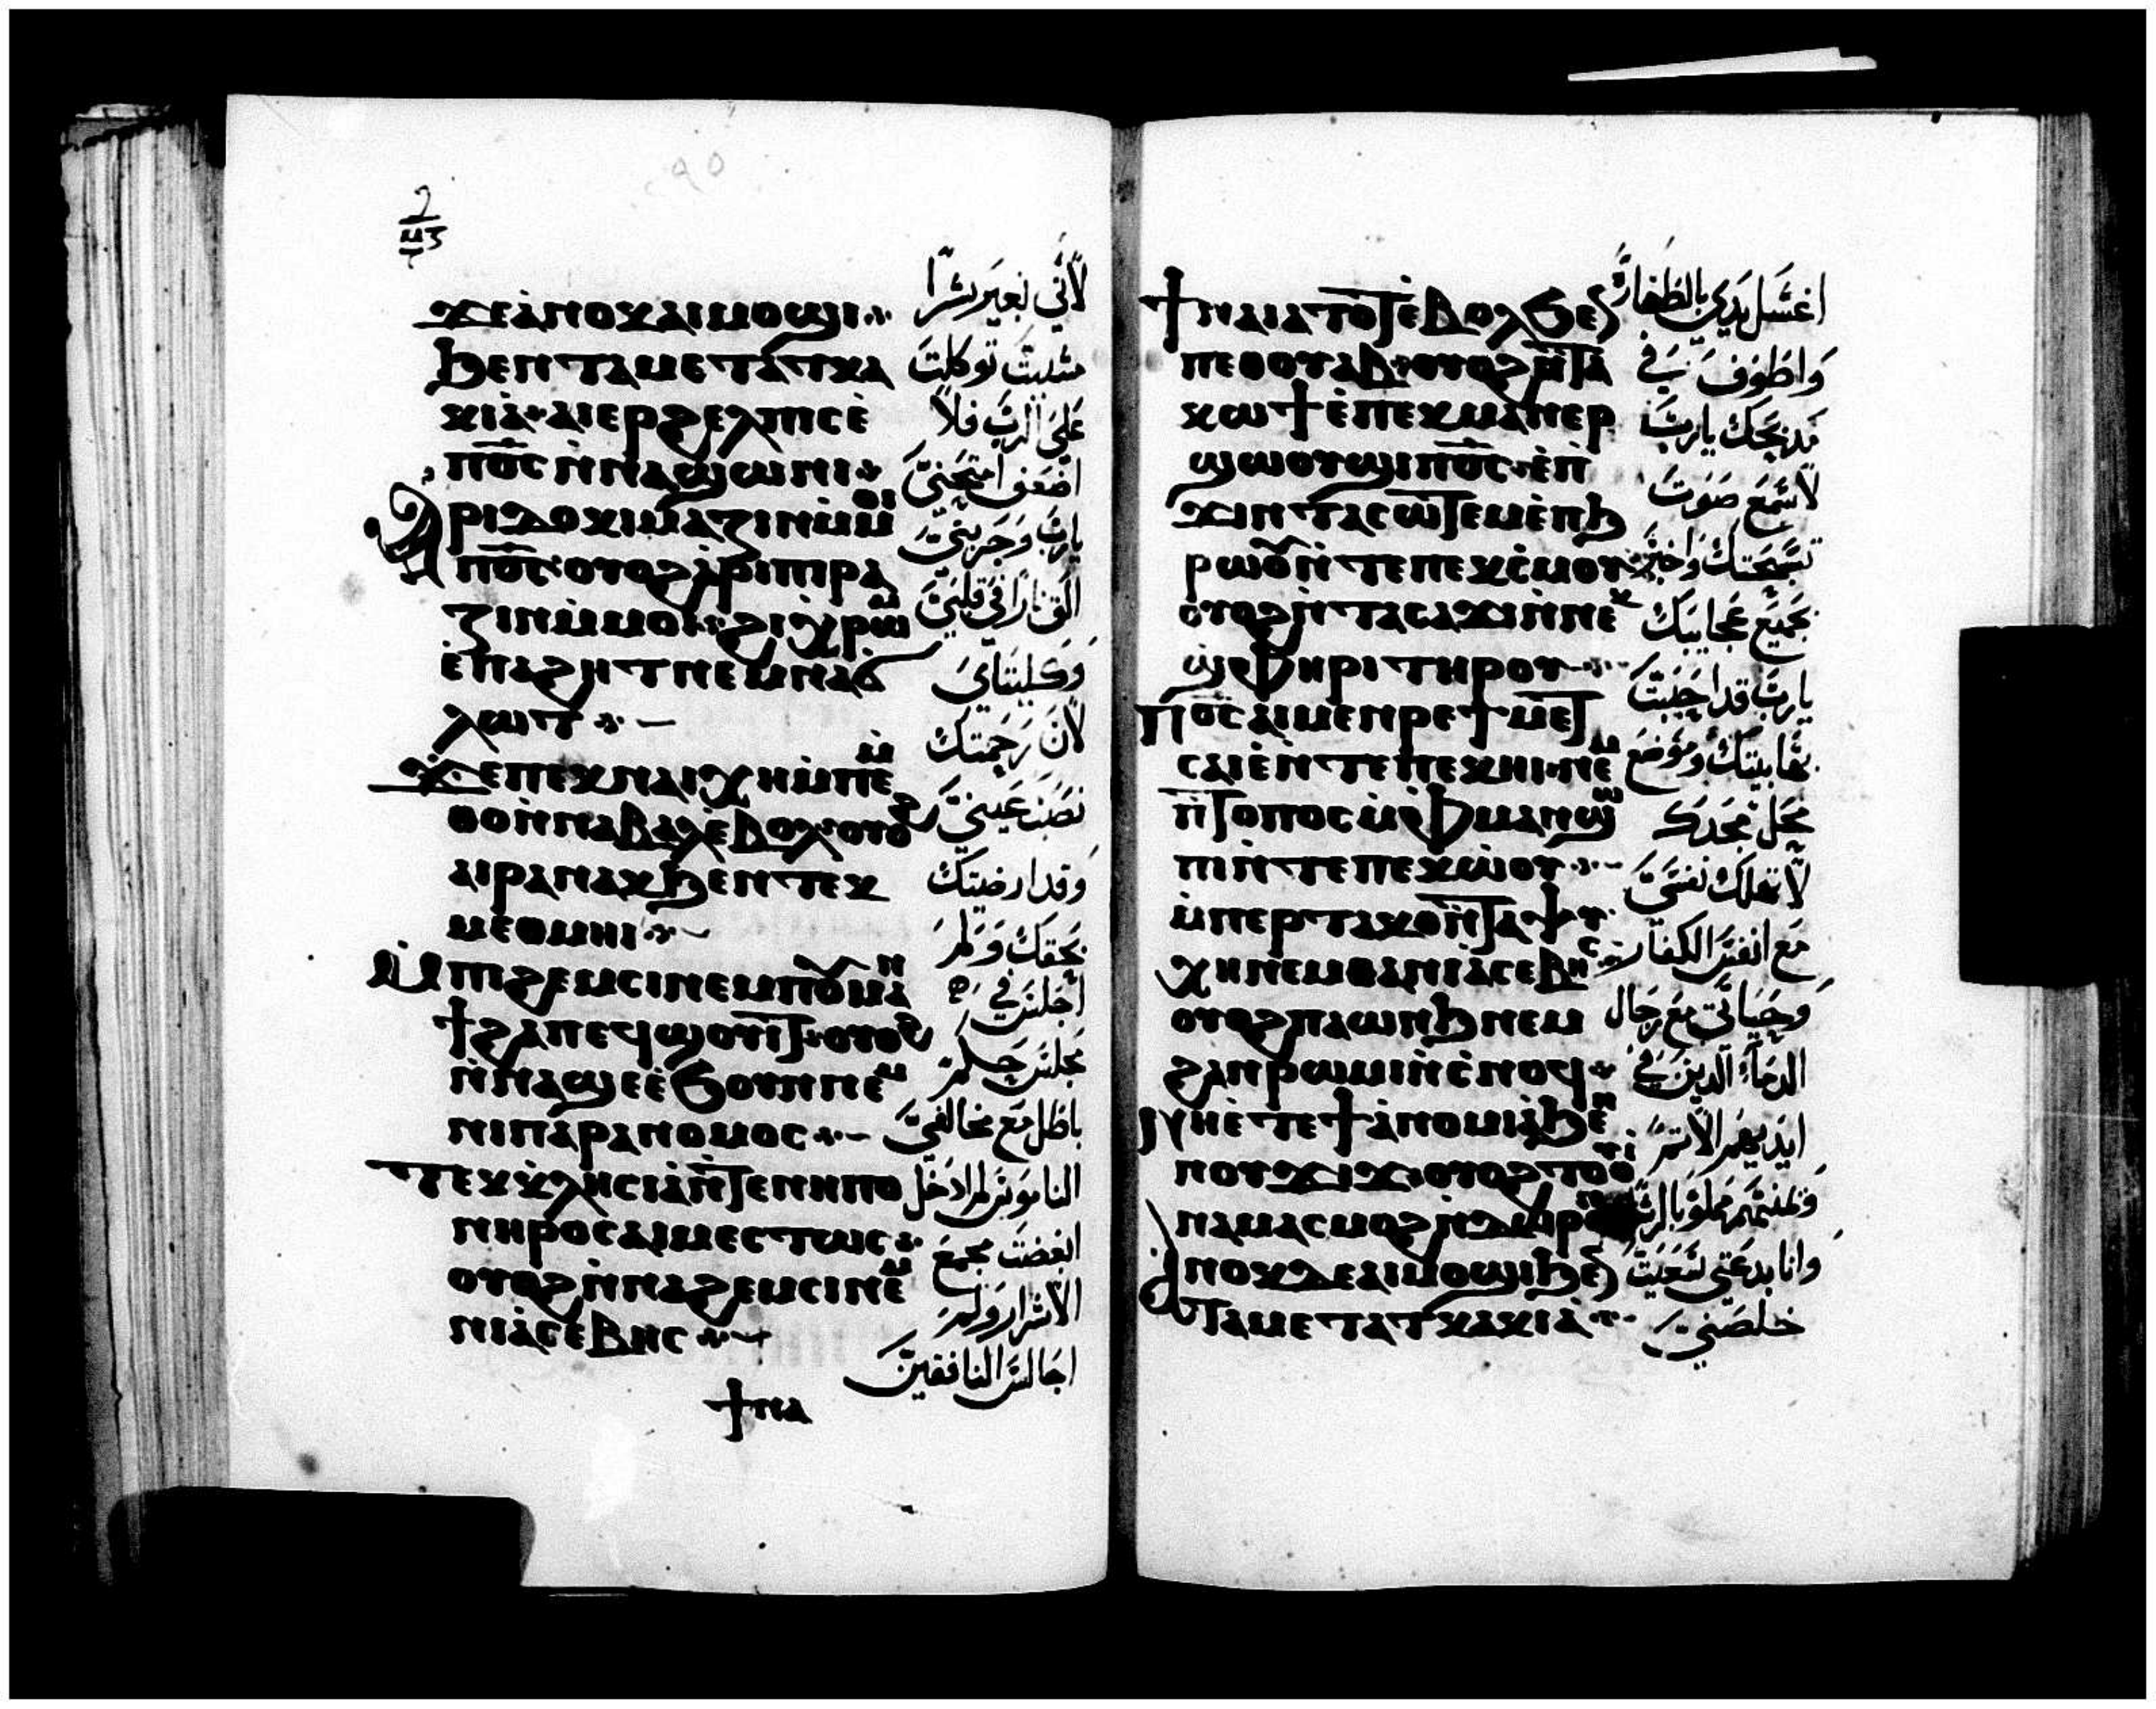 ϫⲉⲁⲛⲟⲕⲁⲓⲙⲟϣⲓ
ϧⲉⲛⲧⲁⲙⲉⲧⲁⲧⲕⲁ
ⲕⲓⲁ ⲁⲓⲉⲣϩⲉⲗⲡⲓⲥⲉ
ⲡⲟⲥ ⲛⲛⲁϣⲱⲛⲓ
ⲁⲣⲓⲇⲟⲕⲓⲙⲁⲍⲓⲛⲙⲙⲟⲓ
ⲡⲟⲥ ⲟⲩⲟϩⲁⲣⲓⲡⲓⲣⲁ
ⲍⲓⲛⲙⲙⲟⲓ ϩⲓⲭⲣⲱⲙ
ⲉⲛⲁϩⲏⲧⲛⲉⲙⲛⲁϭ
ⲗⲱⲧ
ϫⲉⲡⲉⲕⲛⲁⲓⲭⲏⲙⲡⲉⲙ
ⲑⲟⲛⲛⲁⲃⲁⲗⲉⲃⲟⲗ ⲟⲩⲟϩ
ⲁⲓⲣⲁⲛⲁⲕϧⲉⲛⲧⲉⲕ
ⲙⲉⲑⲙⲏⲓ
ⲙⲡⲓϩⲉⲙⲥⲓⲛⲉⲙ
ⲛⲛⲁϣⲉⲉϧⲟⲩⲛⲛⲉⲙ
ⲛⲓⲡⲁⲣⲁⲛⲟⲙⲟⲥ
ⲛⲏⲣⲟⲥⲁⲓⲙⲉⲥⲧⲱⲥ
ⲟⲩⲟϩⲛⲛⲁϩⲉⲙⲥⲓⲛⲉⲙ
ⲛⲓⲁⲥⲉⲃⲏⲥ
ϯⲛⲁ
لاني بغير شرا
مشيت توكلت
على الرب فلا
اضعف امتحني
يارب وجربني
الق نارا في قلبي
وكليتاي
لان رحمتك
نصب عيني
وقد ارضيتك
بحقك ولم
اجلس في
مجلس حكم
باطل مع مخالفي
الناموس لم ادخل
ابغضت مجمع
الاشرار ولم
اجالس المنافقين
ⲡⲉⲑⲟⲩⲁⲃ ⲟⲩⲟϩⲛⲧⲁ
ⲕⲱϯⲉⲡⲉⲕⲙⲁⲛⲉⲣ
ϣⲱⲟⲩϣⲓⲡⲟⲥ ⲉⲡ
ϫⲓⲛⲧⲁⲥⲱⲧⲉⲙⲉⲡϧ
ⲣⲱⲟⲩⲛⲧⲉⲡⲉⲕⲥⲙⲟⲩ
ⲟⲩⲟϩⲛⲧⲁⲥⲁϫⲓⲛⲛⲉⲕ
ϣⲫⲏⲣⲓⲧⲏⲣⲟⲩ
ⲡⲟⲥⲁⲓⲙⲉⲛⲣⲉϯⲙⲉⲧ
ⲥⲁⲓⲉⲛⲧⲉⲡⲉⲕⲏⲓ ⲛⲉⲙ
ⲡⲧⲟⲡⲟⲥⲙⲫⲙⲁⲛϣⲱ
ⲡⲓⲛⲧⲉⲡⲉⲕⲱⲟⲩ
ⲙⲡⲉⲣⲧⲁⲕⲟⲛⲧⲁⲯⲩ
ⲭⲏⲛⲉⲙⲑⲁⲛⲓⲁⲥⲉⲃⲏⲥ
ⲟⲩⲟϩⲡⲁⲱⲛϧⲛⲉⲙ
ϩⲁⲛⲣⲱⲙⲓⲛⲥⲛⲟϥ
ⲛⲏⲉⲧⲉϯⲁⲛⲟⲙⲓⲁϧⲉⲛ
ⲛⲟⲩϫⲓϫ ⲟⲩⲟϩⲧⲟⲩⲓ
ⲛⲁⲙⲁⲥⲙⲟϩⲛⲇⲱⲣⲟⲛ
ⲁⲛⲟⲕⲇⲉⲁⲓⲙⲟϣⲓϧⲉⲛ
ⲧⲁⲙⲉⲧⲁⲧⲕⲁⲕⲓⲁ
اغسل يدي بالطهارة
واطوف في
مذبحك يارب
لاسمع صوت
تسبحتك واخبر
بجميع عجايبك
يارب قد احببت
بهابيتك وموضع
محل مجدك
لا تهلك نفسي
مع انفس الكفار
وحياتي مع رجال
الدماء الذين في
ايديهم الاثم
وانا بدعتي سعيت
خلصني